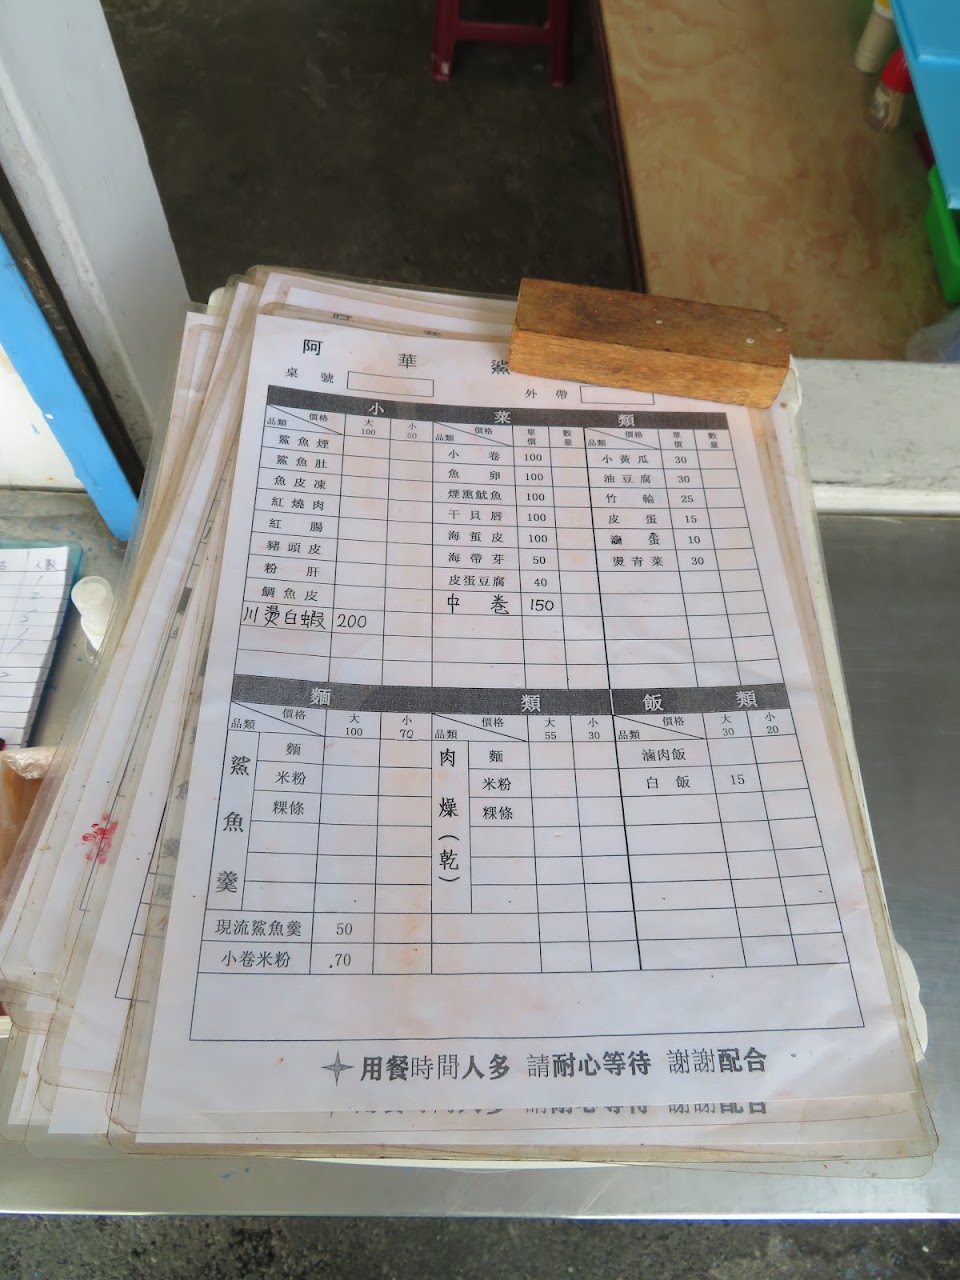 阿 華 鯊
桌 號 外 帶
小 菜 類
品類 價格 大 100 小 50 品類 價格 單價 數量 品類 價格 單價 數量
鯊魚煙 小 卷 100 小黃瓜 30
鯊魚肚 魚 卵 100 油豆腐 30
魚皮凍 煙熏魷魚 100 竹 輪 25
紅燒肉 干貝唇 100 皮 蛋 15
紅 腸 海蜇皮 100 滷 蛋 10
豬頭皮 海帶芽 50 燙青菜 30
粉 肝 皮蛋豆腐 40
鯛魚皮 中 卷 150
川燙白蝦 200
麵 類 飯 類
品類 價格 大 100 小 70 品類 價格 大 55 小 30 品類 價格 大 30 小 20
鯊魚羹 麵 肉燥(乾) 麵 滷肉飯
米粉 米粉 白 飯 15
粿條 粿條
現流鯊魚羹 50
小卷米粉 70
用餐時間人多 請耐心等待 謝謝配合